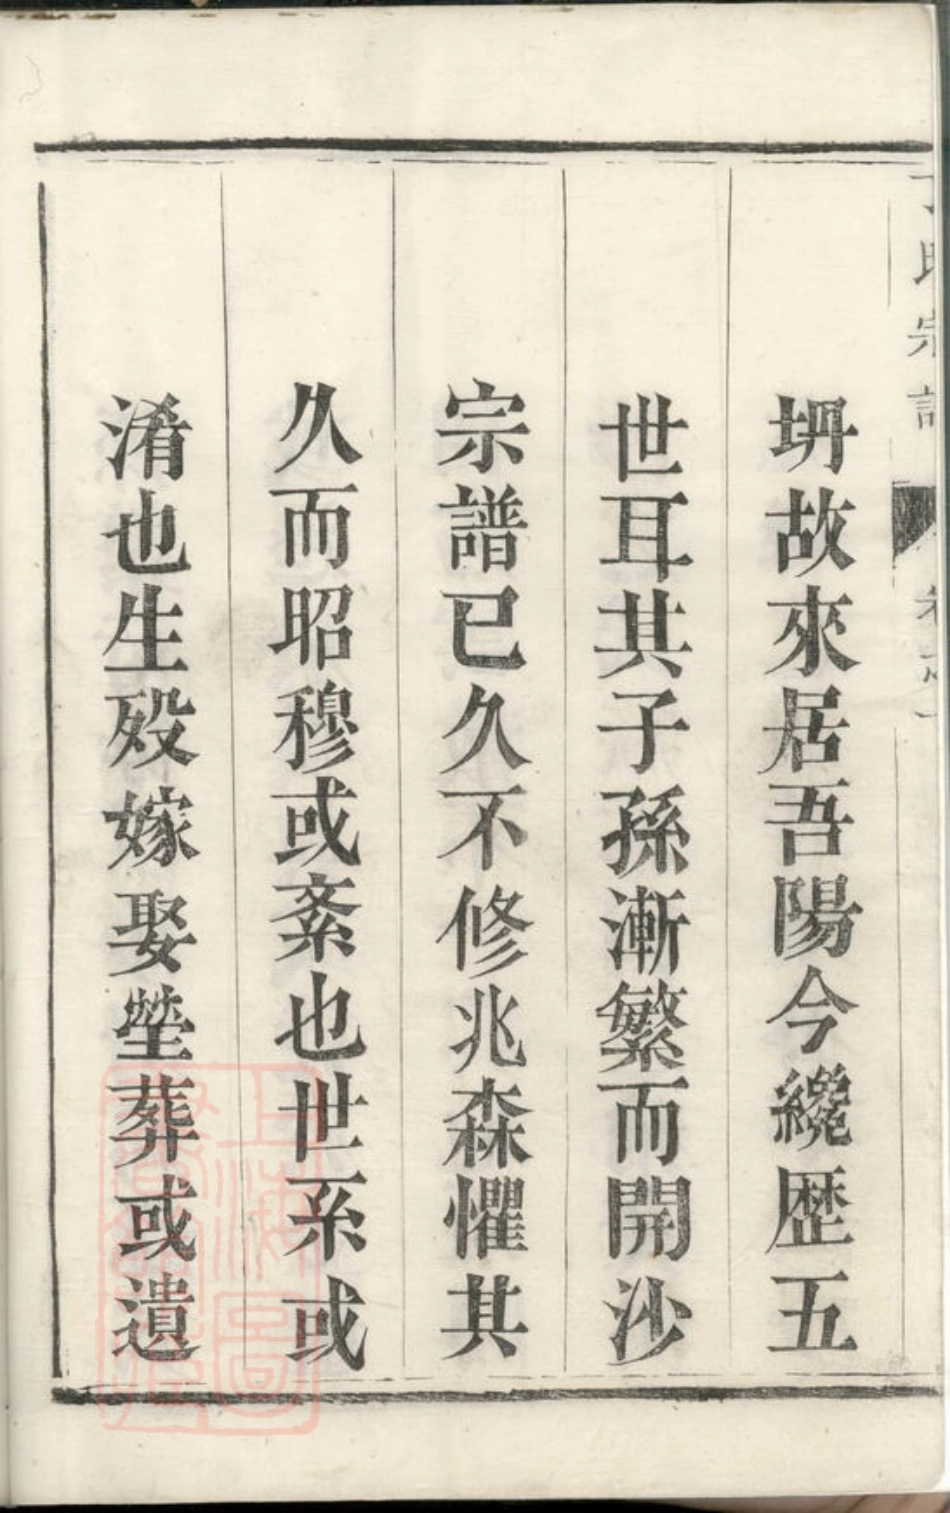 坍故來居吾陽今纔歴五
世耳其子孫漸繁而開沙
宗譜已久不修兆森懼其
久而昭穆或紊也世系或
淆也生殁嫁娶塋葬或遺
氏宗譜
上海圖